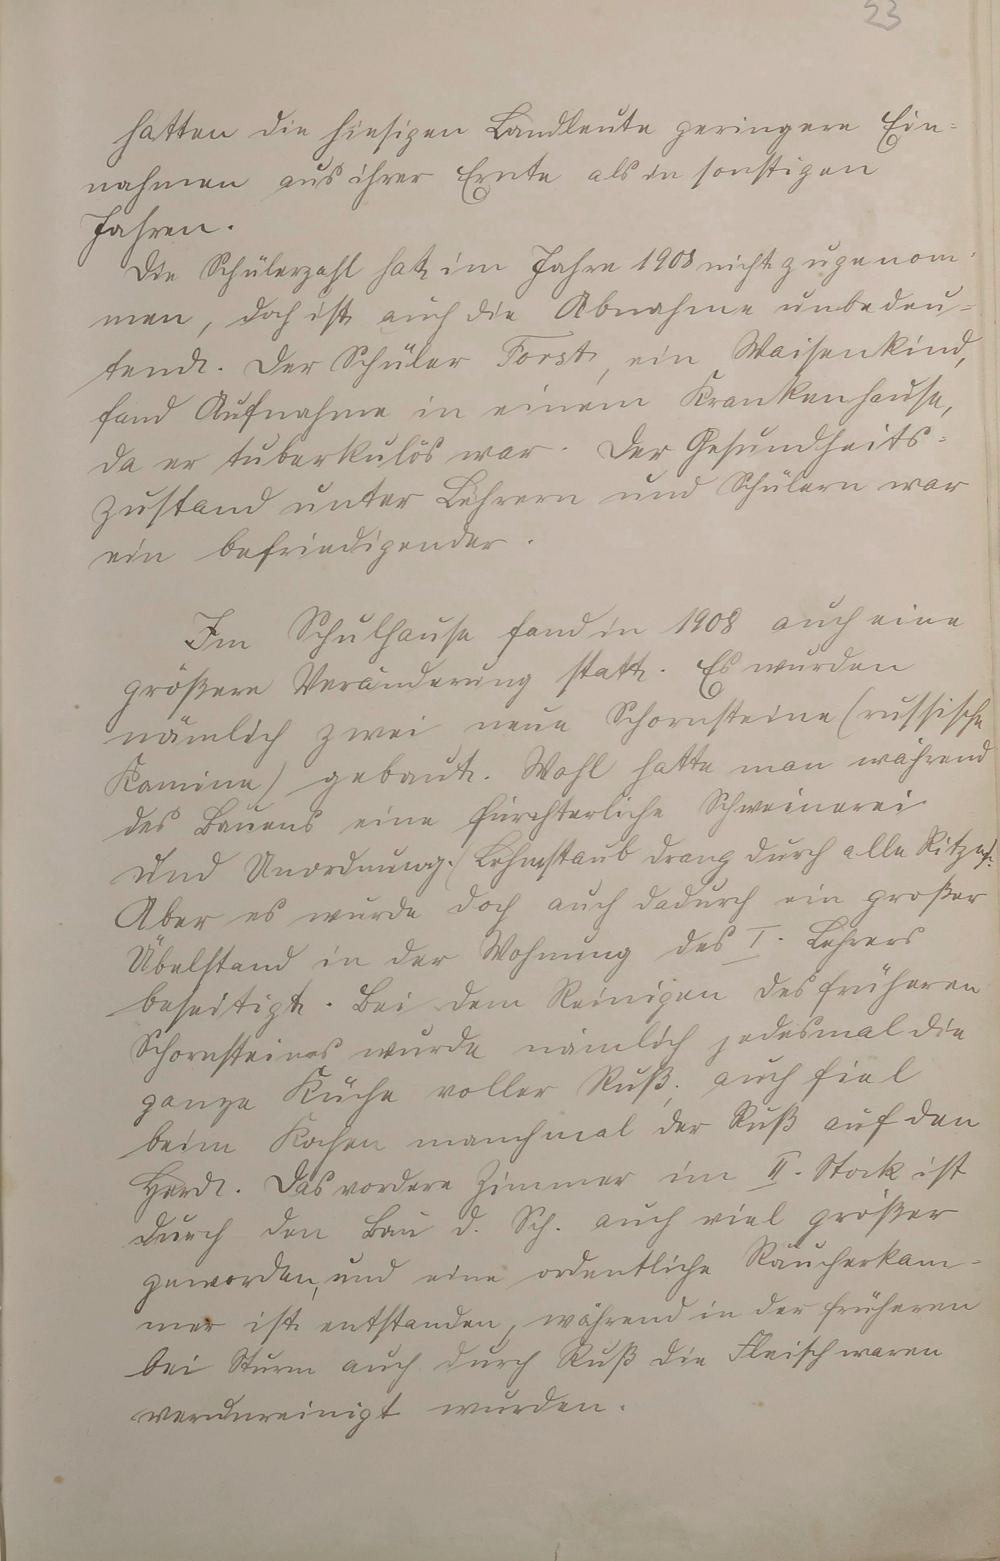 23
hatten die hiesigen Landleute geringere Ein-
nahmen aus ihrer Ernte als in sonstigen
Jahren.
Die Schülerzahl hat im Jahre 1908 nicht zugenom-
men, doch ist auch die Abnahme unbedeu-
tend. Der Schüler Forst, ein Waisenkind,
fand Aufnahme in einem Krankenhause,
da er tuberkulös war. Der Gesundheits-
zustand unter Lehrern und Schülern war
ein befriedigender.
Im Schulhause fand in 1908 auch eine
größere Veränderung statt. Es wurden
nämlich zwei neue Schornsteine (russische
Kamine) gebaut. Wohl hatte man während
des Bauens eine fürchterliche Schweinerei
und Unordnung. (Lehmstaub drang durch alle Ritzen).
Aber es wurde doch auch dadurch ein großer
Übelstand in der Wohnung des I. Lehrers
beseitigt. Bei dem Reinigen des früheren
Schornsteines wurde nämlich jedesmal die
ganze Küche voller Ruß, auch fiel
beim Kochen manchmal der Ruß auf den
Herd. Das vordere Zimmer im II. Stock ist
durch den Bau d. Sch. auch viel größer
geworden, und eine ordentliche Räucherkam-
mer ist entstanden, während in der früheren
bei Sturm auch durch Ruß die Fleischwaren
verunreinigt wurden.